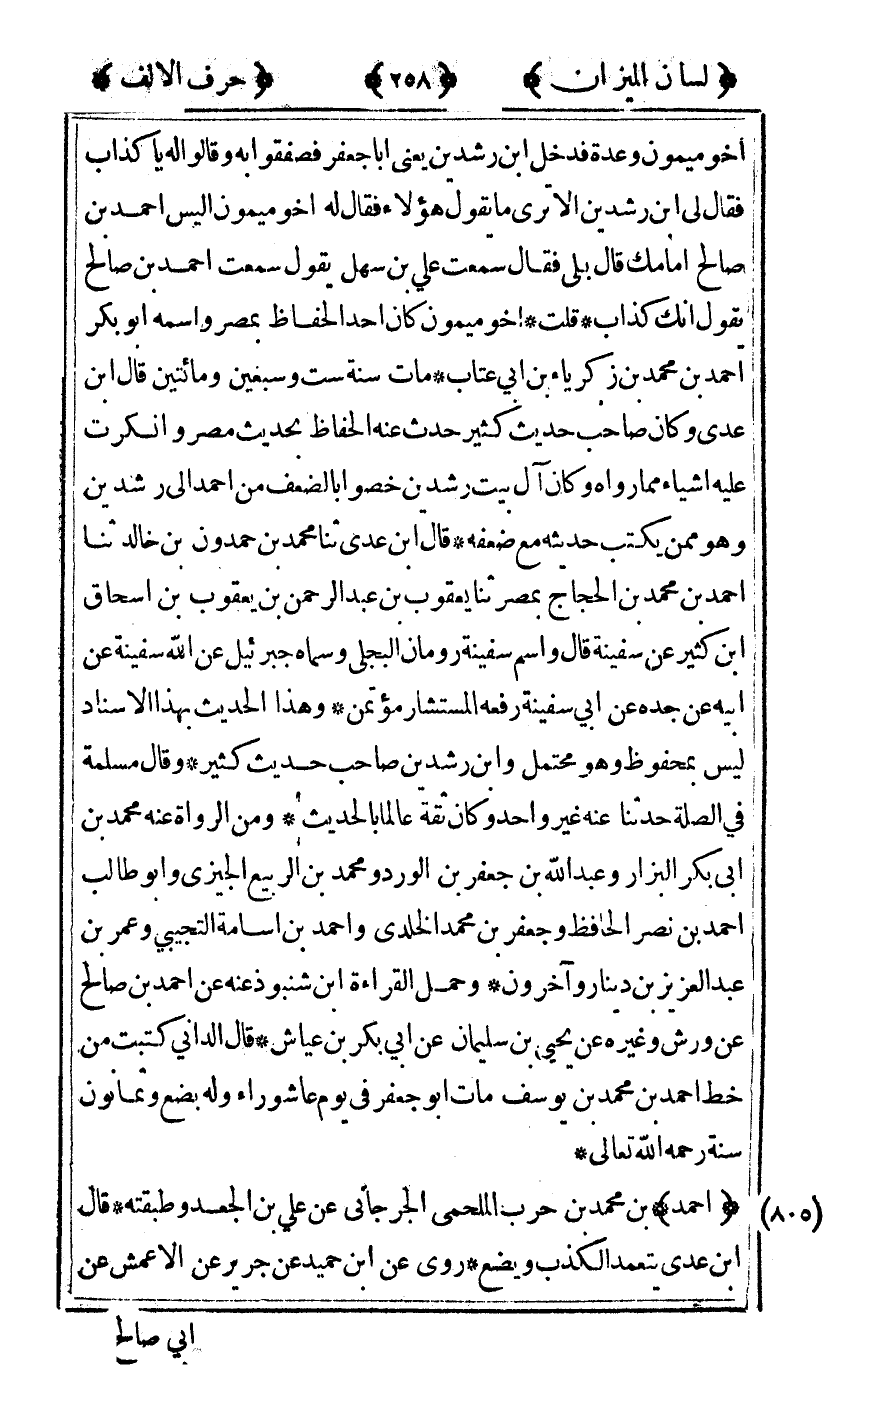 ﴿ لسان الميزان ﴾ ﴿ ٢٥٨ ﴾ ﴿ حرف الالف ﴾
اخو ميمون وعدة فدخل ابن رشدين يعنى ابا جعفر فصفقوا به وقالوا له يا كذاب
فقال لى ابن رشدين الا ترى ما يقول هؤلاء فقال له اخو ميمون اليس احمد بن
صالح امامك قال بلى فقال سمعت علي بن سهل يقول سمعت احمد بن صالح
يقول انك كذاب * قلت * اخو ميمون كان احد الحفاظ بمصر واسمه ابو بكر
احمد بن محمد بن زكرياء بن ابي عتاب * مات سنة ست وسبعين ومائتين قال ابن
عدى وكان صاحب حديث كثير حدث عنه الحفاظ بحديث مصر وانكرت
عليه اشياء مما رواه وكان آل بيت رشدين خصوا بالضعف من احمد الى رشدين
وهو ممن يكتب حديثه مع ضعفه * قال ابن عدى ثنا محمد بن حمدون بن خالد ثنا
احمد بن محمد بن الحجاج بمصر ثنا يعقوب بن عبد الرحمن بن يعقوب بن اسحاق
ابن كثير عن سفينة قال واسم سفينة رومان البجلى وسماه جبرئيل عن الله سفينة عن
ابيه عن جده عن ابي سفينة رفعه المستشار مؤتمن * وهذا الحديث بهذا الاسناد
ليس بمحفوظ وهو محتمل وابن رشدين صاحب حديث كثير * وقال مسلمة
في الصلة حدثنا عنه غير واحد وكان ثقة عالما بالحديث * ومن الرواة عنه محمد بن
ابى بكر البزار وعبد الله بن جعفر بن الورد ومحمد بن الربيع الجيزى وابو طالب
احمد بن نصر الحافظ وجعفر بن محمد الخلدى واحمد بن اسامة التجيبي وعمر بن
عبد العزيز بن دينار وآخرون * وحمل القراءة ابن شنبوذ عنه عن احمد بن صالح
عن ورش وغيره عن يحيى بن سليمان عن ابي بكر بن عياش * قال الداني كتبت من
خط احمد بن محمد بن يوسف مات ابو جعفر فى يوم عاشوراء وله بضع وثمانون
سنة رحمه الله تعالى *
﴿ احمد ﴾ بن محمد بن حرب الملحمى الجرجانى عن علي بن الجعد وطبقته * قال (٨٠٥)
ابن عدى يتعمد الكذب ويضع * روى عن ابن حميد عن جرير عن الاعمش عن
ابي صالح